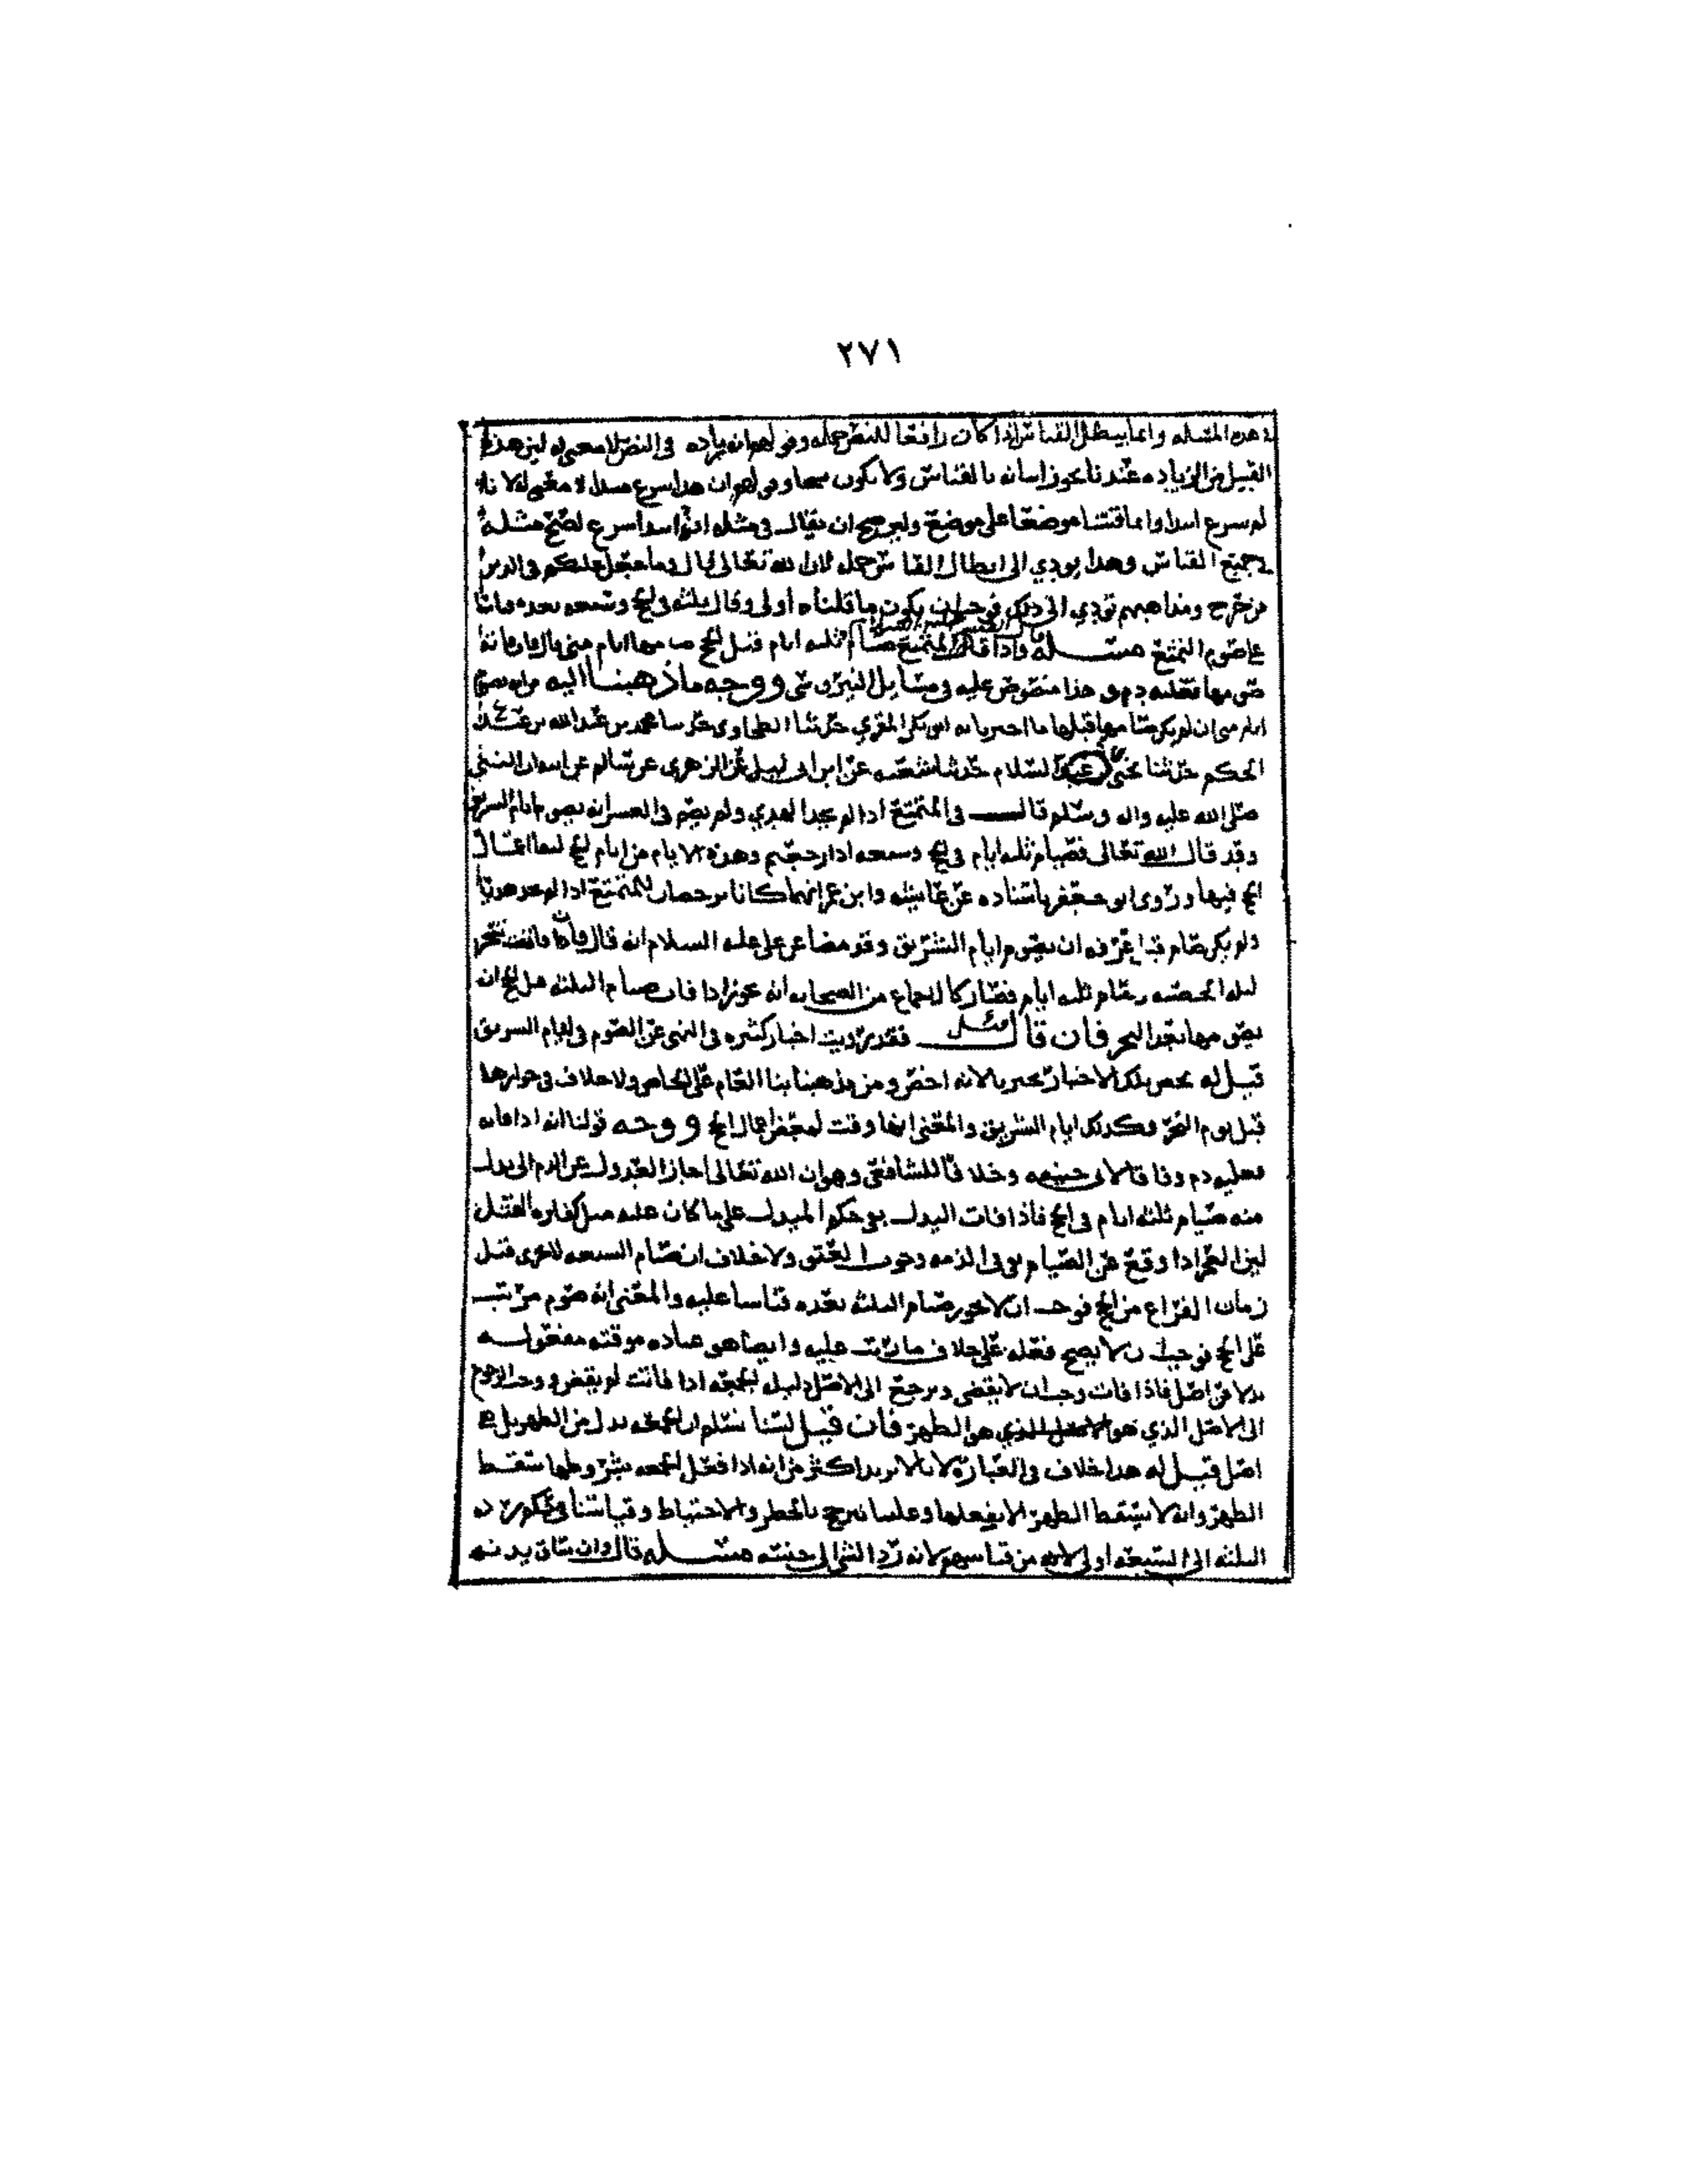 ٢٧١
هذه المسله وانما يبطل القياس اذا كان رافعا للنص جمله وقولهم انه زياده في النص لا معنى له لان هذا
القبيل من الزياده عندنا يجوز اثباته بالقياس ولا يكون نسخا وقولهم ان هذا شرع مبتدا لا معنى له لانا
لم نشرع ابتدا وانما قسنا موضعا على موضع ولو صح ان يقال في مثله انه ابتدا شرع لصح مثله
في جميع القياس وهذا يودي الى ابطال القياس جمله لان الله تعالى قال وما جعل عليكم في الدين
من حرج ومذاهبهم تودي الى ذلك فوجب ان يكون ما قلناه اولى وقال ثلثه في الحج وسبعه بعده
على صوم التمتع مسله واذا فات المتمتع صيام ثلثه ايام قبل الحج صامها ايام منى فان فاته
صومها فعليه دم وهذا منصوص عليه في مسايل النيروسي ووجه ما ذهبنا اليه من انه يصوم
ايام منى ان لم يكن صامها قبلها ما اخبرنا به ابو بكر المقري حدثنا الطحاوي حدثنا محمد بن عبد الله بن
الحكم حدثنا يحيى عبد السلام حدثنا شعبه عن ابن ابي ليلى عن الزهري عن سالم عن ابيه ان النبي
صلى الله عليه واله وسلم قال في المتمتع اذا لم يجد الهدي ولم يصم في العشر انه يصوم ايام التشريق
وقد قال الله تعالى فصيام ثلثه ايام في الحج وسبعه اذا رجعتم وهذه الايام من ايام الحج لبقا اعمال
الحج فيها وروى ابو جعفر باسناده عن عايشه وابن عمر انهما كانا يرخصان للمتمتع اذا لم يجد هديا
ولم يكن صام قبل عرفه ان يصوم ايام التشريق وقد مضا عن علي عليه السلام انه قال فان فاته تسحر
ليله الحصبه وصام ثلثه ايام فصار كالاجماع من الصحابه انه يجوز اذا فات صيام الثلثه قبل الحج ان
يصومها بعد النحر فان قال قيل فقد رويت اخبار كثيره في النهي عن الصوم في ايام التشريق
قيل له نخص تلك الاخبار بخبرنا لانه اخص ومن مذهبنا بنا العام على الخاص ولا خلاف في جوازها
قبل يوم النحر فكذلك ايام التشريق والمعنى انها وقت لبعض اعمال الحج ووجه قولنا انه اذا فاته
فعليه دم وفاقا لابي حنيفه وخلافا للشافعي وهو ان الله تعالى اجاز العدول عن الدم الى بدل
منه صيام ثلثه ايام في الحج فاذا فات البدل بقي حكم المبدل على ما كان عليه مثل كفاره القتل
لان العجز اذا وقع عن الصيام بقي في الذمه وجوب العتق ولا خلاف ان صيام السبعه لا يجزي قبل
زمان الفراغ من الحج فوجب ان لا يجوز صيام الثلثه بعده قياسا عليه والمعنى انه صوم مرتب
على الحج فوجب ان لا يصح فعله على خلاف ما رتب عليه وايضا هو عباده موقته مفعوله
بدلا عن اصل فاذا فات وجب ان لا يقضى ويرجع الى الاصل دليله الجمعه اذا فاتت لم يقض ووجب الرجوع
الى الاصل الذي هو الاصل الذي هو الظهر فان قيل لسنا نسلم ان الجمعه بدل من الظهر بل هي
اصل قيل له هذا خلاف في العباره لانا لا نريد اكثر من انه اذا فعل الجمعه بشروطها سقط
الظهر وانه لا يسقط الظهر الا بفعلها وقياسنا يرجح بالحظر والاحتياط وقياسنا
الثلثه الى السبعه اولى لانه من قياسهم لانه رد الشي الى جنسه مسله قال وان ساق بدنه